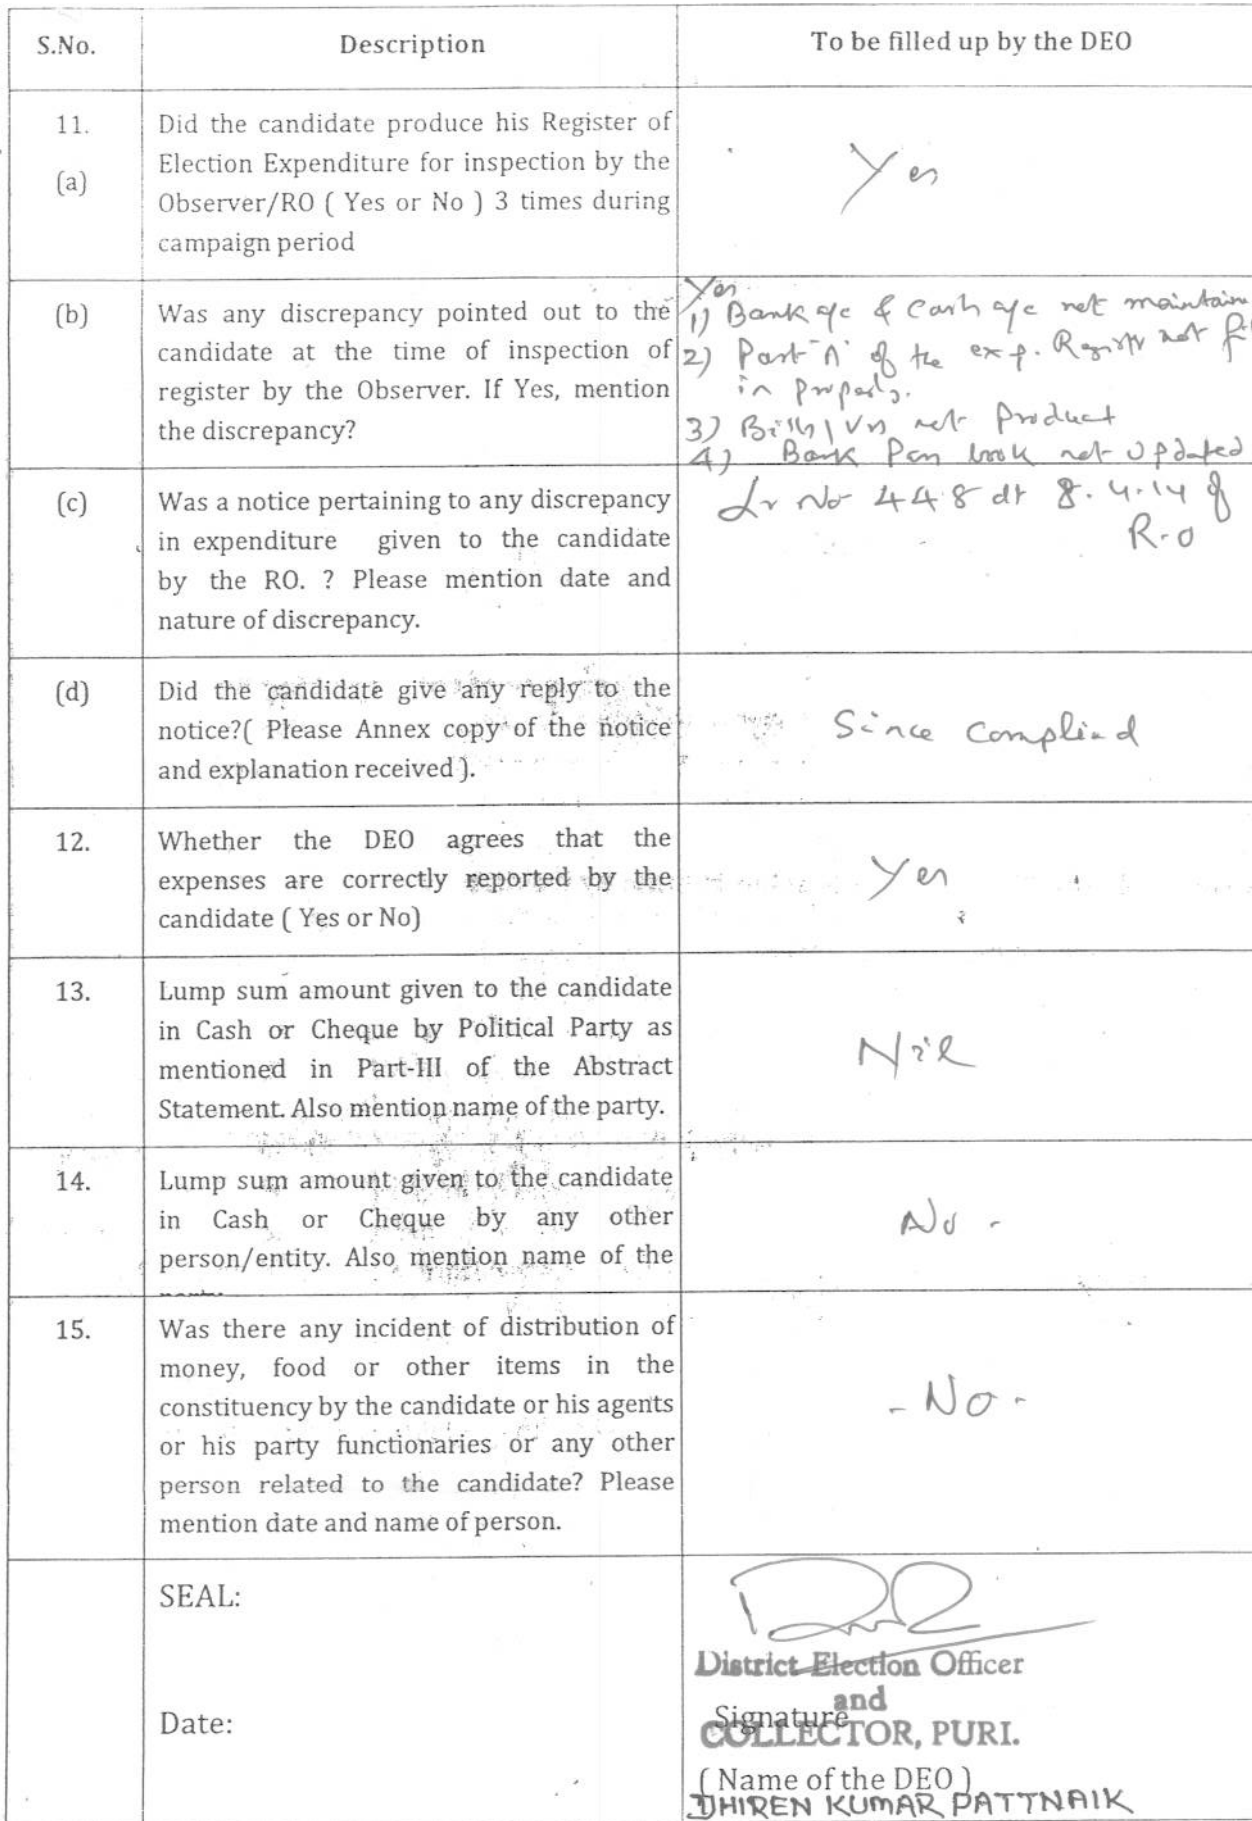 S.No. Description To be filled up by the DEO
11. (a) Did the candidate produce his Register of
Election Expenditure for inspection by the
Observer/RO ( Yes or No ) 3 times during
campaign period
Yes
(b) Was any discrepancy pointed out to the
candidate at the time of inspection of
register by the Observer. If Yes, mention
the discrepancy?
Yes
1) Bank a/c & Cash a/c not maintain
2) Part 'A' of the exp. Register not
in properly.
3) Bills/Vrs not product
4) Bank Pass book not updated
(c) Was a notice pertaining to any discrepancy
in expenditure given to the candidate
by the RO. ? Please mention date and
nature of discrepancy.
Lr No 448 dt 8.4.14 of
R.O
(d) Did the candidate give any reply to the
notice?( Please Annex copy of the notice
and explanation received ).
Since Complied
12. Whether the DEO agrees that the
expenses are correctly reported by the
candidate ( Yes or No)
Yes
13. Lump sum amount given to the candidate
in Cash or Cheque by Political Party as
mentioned in Part-III of the Abstract
Statement. Also mention name of the party.
Nil
14. Lump sum amount given to the candidate
in Cash or Cheque by any other
person/entity. Also mention name of the
No -
15. Was there any incident of distribution of
money, food or other items in the
constituency by the candidate or his agents
or his party functionaries or any other
person related to the candidate? Please
mention date and name of person.
- No -
SEAL:
District Election Officer
and
Date:
Signature
COLLECTOR, PURI.
( Name of the DEO )
DHIREN KUMAR PATTNAIK